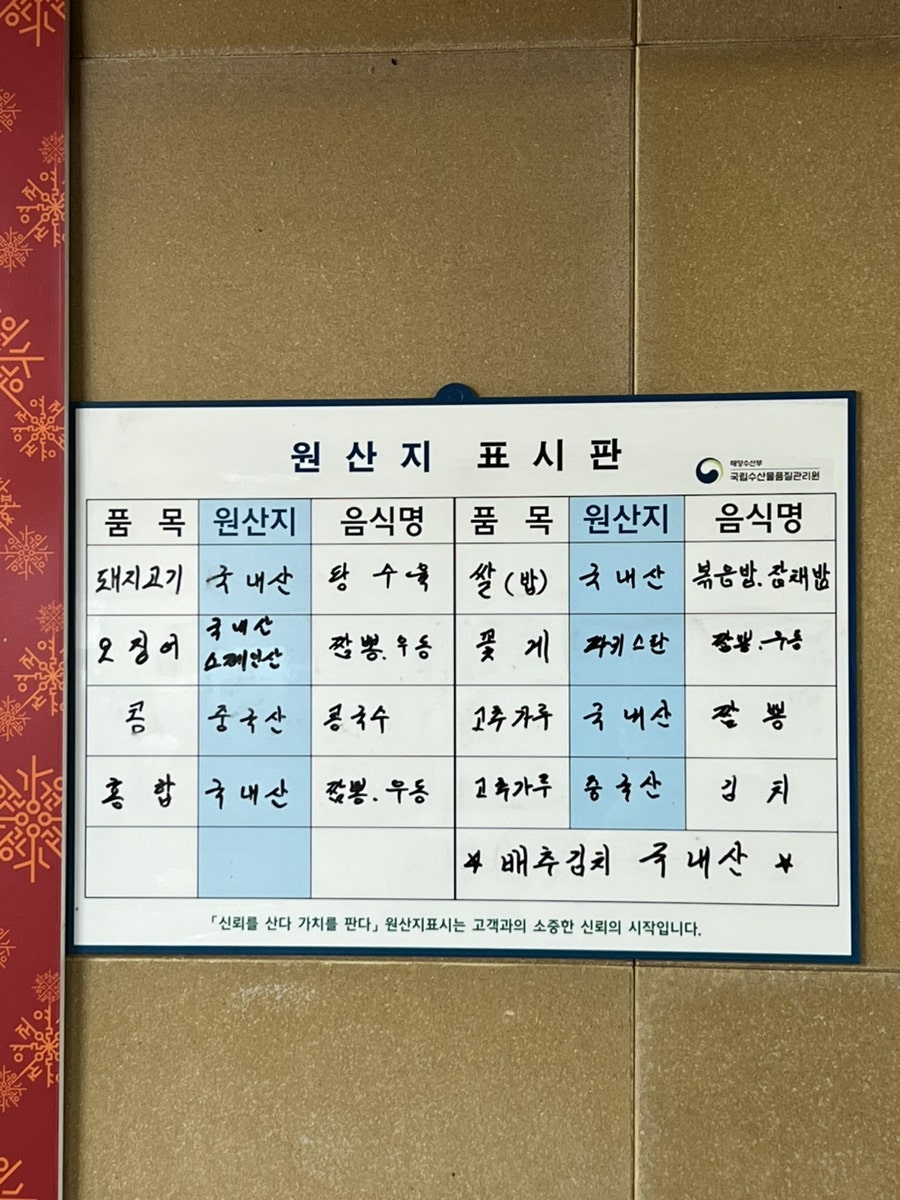 원산지 표시판
해양수산부
국립수산물품질관리원
품목 원산지 음식명 품목 원산지 음식명
돼지고기 국내산 탕수육 쌀(밥) 국내산 볶음밥.잡채밥
오징어 국내산 짬뽕.우동 꽃게 파키스탄 짬뽕.우동
콩 중국산 콩국수 고추가루 국내산 짬뽕
홍합 국내산 짬뽕.우동 고추가루 중국산 김치
* 배추김치 국내산 *
「신뢰를 산다 가치를 판다」 원산지표시는 고객과의 소중한 신뢰의 시작입니다.